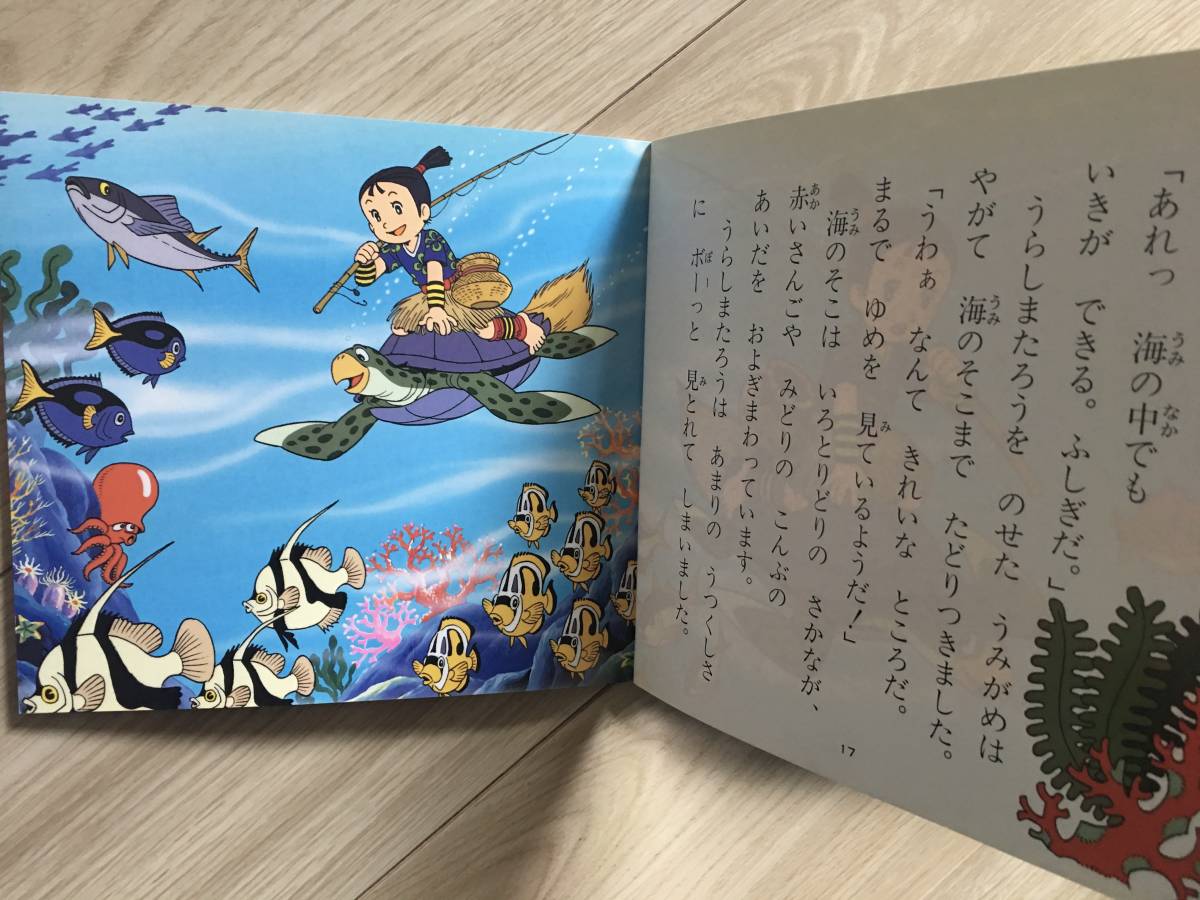 「あれっ　海の中でも
いきが　できる。ふしぎだ。」
うらしまたろうを　のせた　うみがめは
やがて　海のそこまで　たどりつきました。
「うわぁ　なんて　きれいな　ところだ。
まるで　ゆめを　見ているようだ！」
海のそこは　いろとりどりの　さかなが、
赤いさんごや　みどりの　こんぶの
あいだを　およぎまわっています。
うらしまたろうは　あまりの　うつくしさ
に　ボーっと　見とれて　しまいました。
17